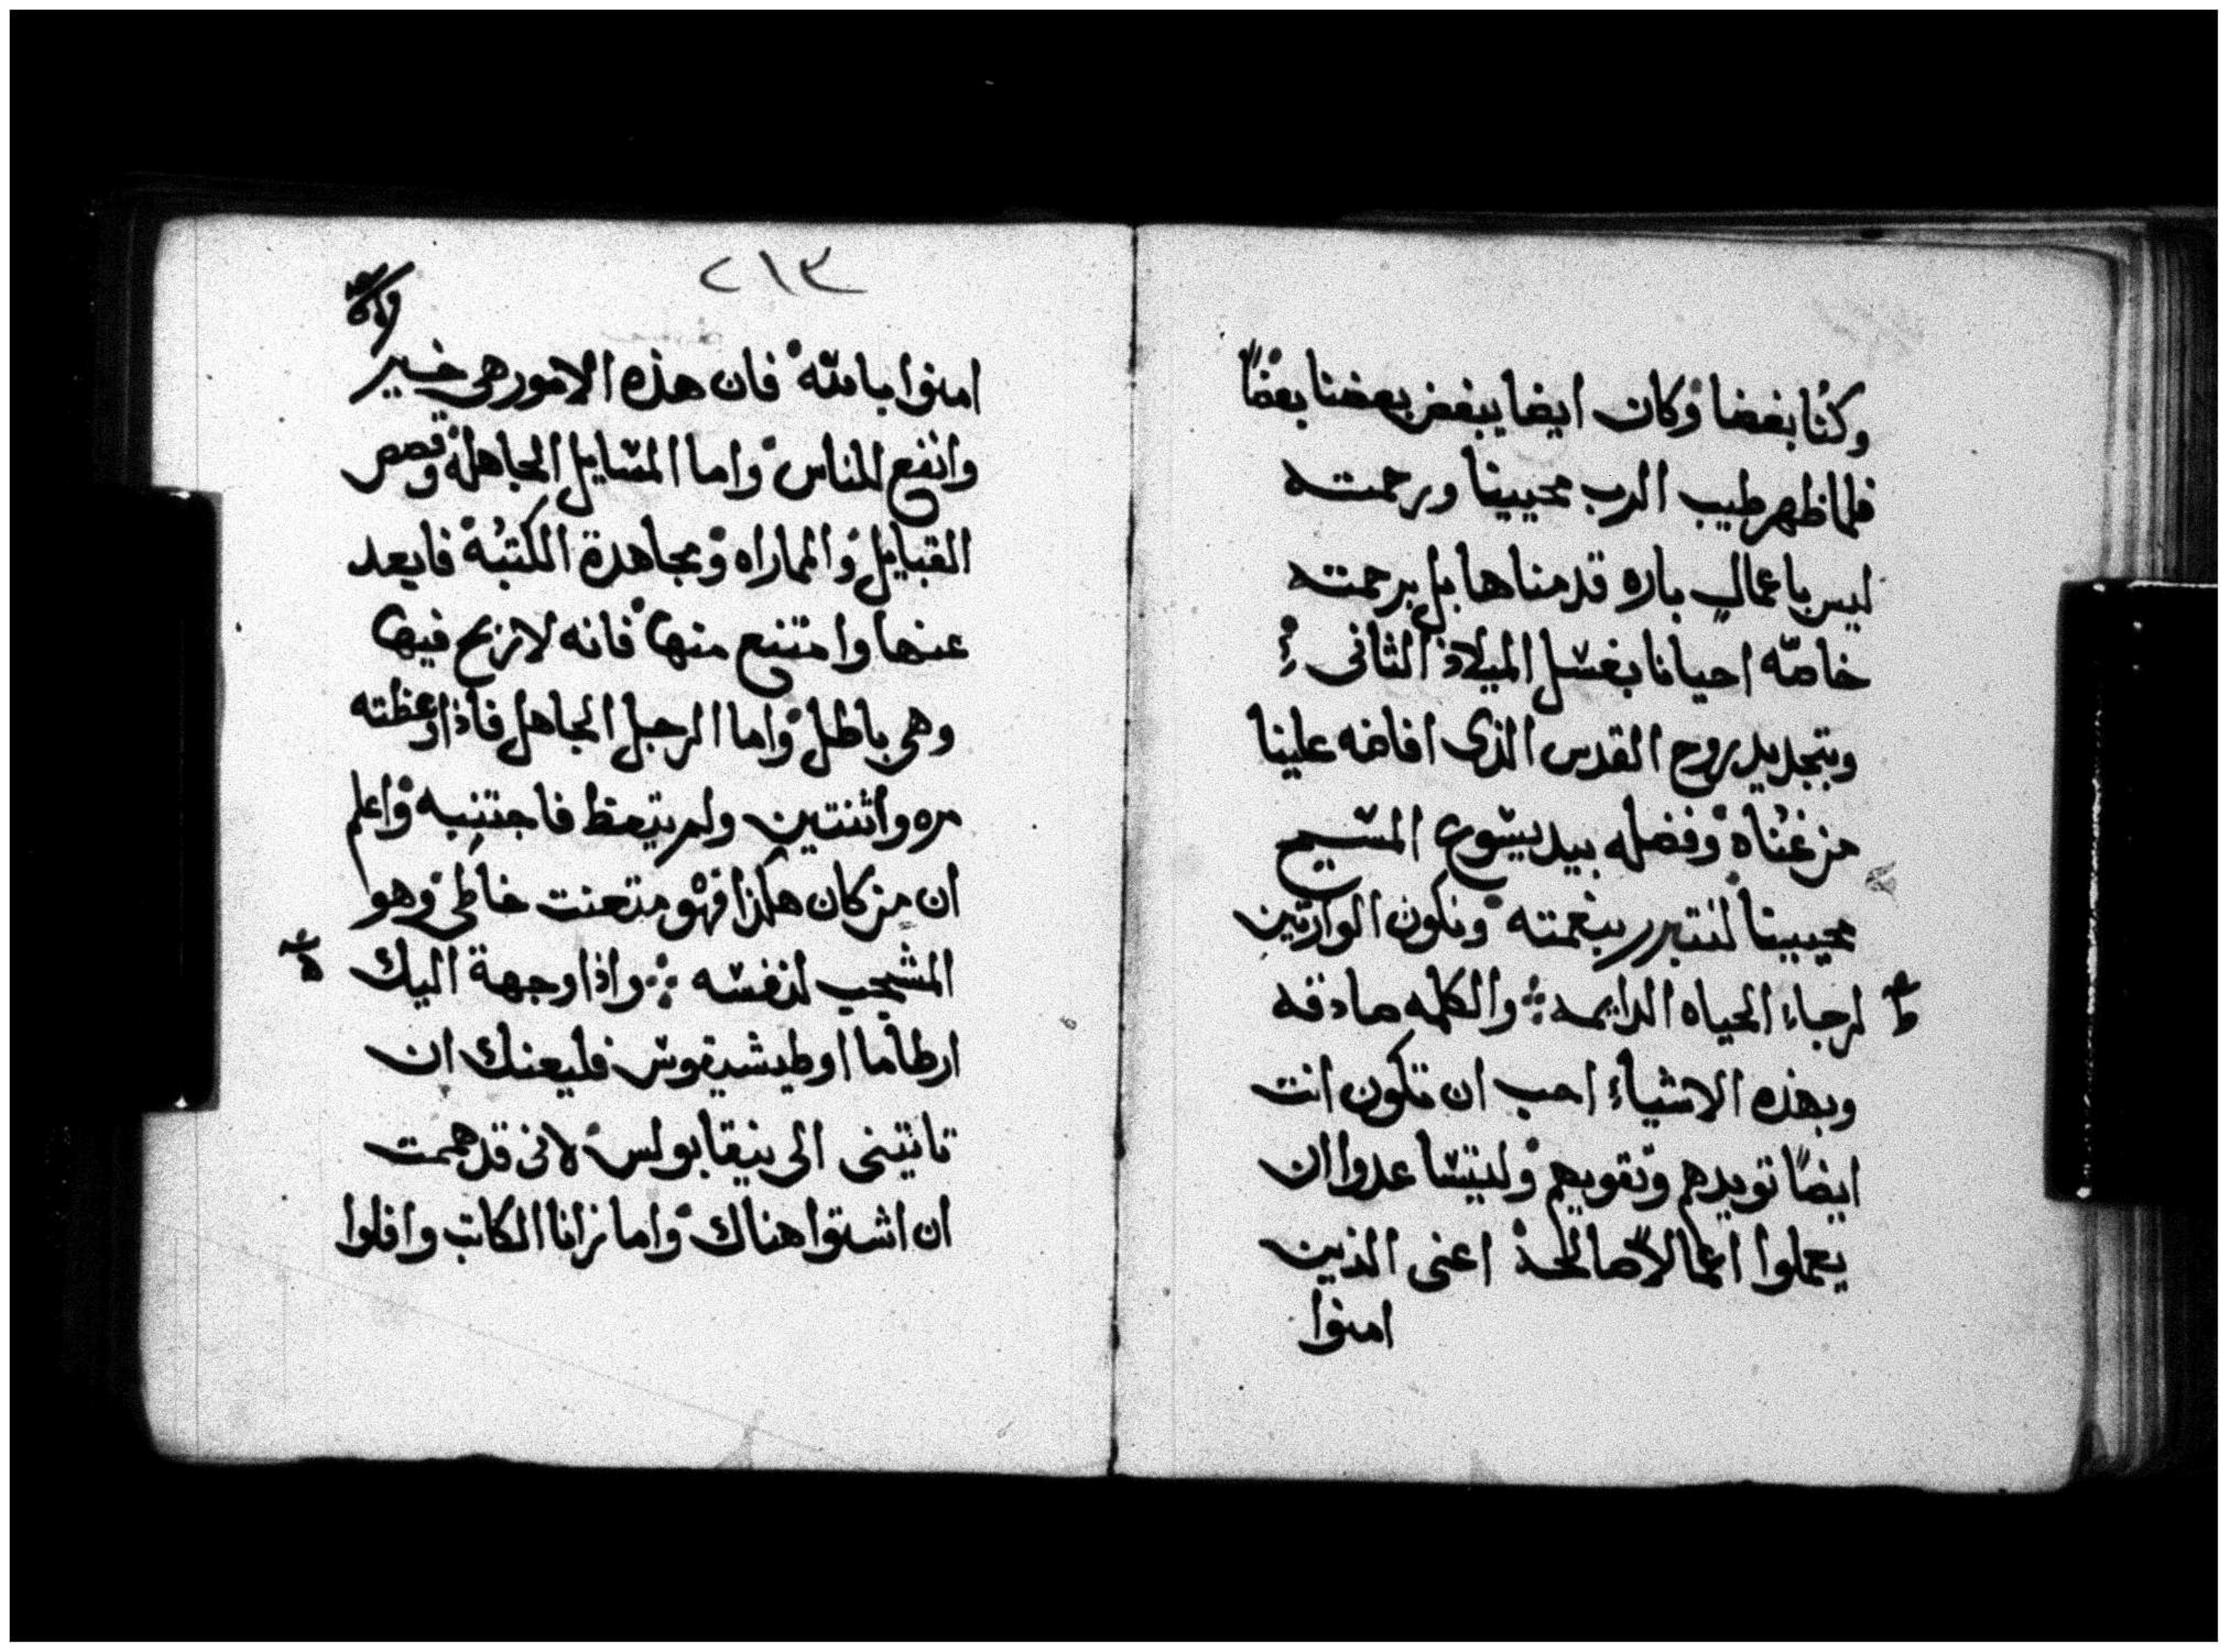 وكنا بغضا وكان ايضا يبغض بعضنا بعضًا
فلما ظهر طيب الرب محيينا ورحمته
ليس باعمال باره قدمناها بل برحمته
خاصّه احيانا بغسل الميلاد الثانى
وبتجديد روح القدس الذى افاضه علينا
من غناه وفضله بيد يسوع المسيح
محيينا لنتبرر بنعمته ونكون الوارثين
لرجاء الحياه الدايمه والكلمه صادقه
وبهذه الاشياء احب ان تكون انت
ايضًا تويدهم وتقويهم وليتساعدوا ان
يعملوا اعمالًا صالحة اعنى الذين
امنوا
٢١٣
امنوا بالله فان هذه الامور هى خير
وانفع للناس واما المسايل الجاهلة وقصص
القبايل والماراه ومجاهدة الكتبة فابعد
عنها وامتنع منها فانه لا نربح فيها
وهى باطل واما الرجل الجاهل فاذا وعظته
مره واثنتين ولم يتعظ فاجتنبه واعلم
ان من كان هكذا فهو متعنت خاطى وهو
المشجب لنفسه واذا وجهة اليك
ارطاما او طيشيقوس فليعنك ان
تاتينى الى نيقابولس لانى قد هممت
ان اشتوا هناك واما زانا الكاتب وافلوا